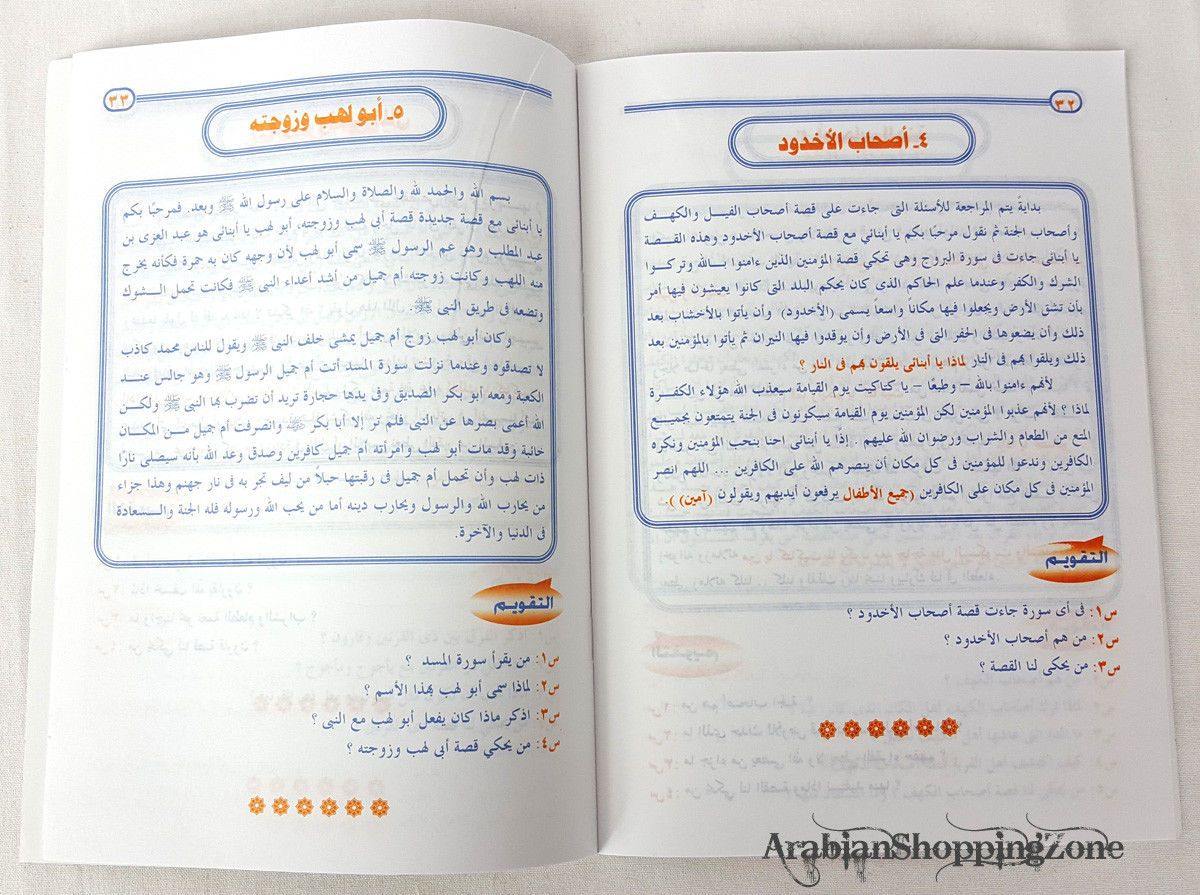 ٣٢
٤ـ أصحاب الأخدود
بدايةً يتم المراجعة للأسئلة التى جاءت على قصة أصحاب الفيل والكهف
وأصحاب الجنة ثم نقول مرحبًا بكم يا أبنائي مع قصة أصحاب الأخدود وهذه القصة
يا أبنائى جاءت فى سورة البروج وهى تحكي قصة المؤمنين الذين ءامنوا بالله وتركوا
الشرك والكفر وعندما علم الحاكم الذى كان يحكم البلد التى كانوا يعيشون فيها أمر
بأن تشق الأرض ويجعلوا فيها مكانًا واسعًا يسمى (الأخدود) وأن يأتوا بالأخشاب بعد
ذلك وأن يضعوها فى الحفر التى فى الأرض وأن يوقدوا فيها النيران ثم يأتوا بالمؤمنين بعد
ذلك ويلقوا بهم فى النار لماذا يا أبنائى يلقون بهم فى النار ؟
لأنهم ءامنوا بالله – وطبعًا – يا كتاكيت يوم القيامة سيعذب الله هؤلاء الكفرة
لماذا ؟ لأنهم عذبوا المؤمنين لكن المؤمنين يوم القيامة سيكونون فى الجنة يتمتعون بجميع
المتع من الطعام والشراب ورضوان الله عليهم . إذًا يا أبنائى احنا بنحب المؤمنين ونكره
الكافرين وندعوا للمؤمنين فى كل مكان أن ينصرهم الله على الكافرين ... اللهم انصر
المؤمنين فى كل مكان على الكافرين (جميع الأطفال يرفعون أيديهم ويقولون (آمين) ).
التقويم
س١: فى أى سورة جاءت قصة أصحاب الأخدود ؟
س٢: من هم أصحاب الأخدود ؟
س٣: من يحكى لنا القصة ؟
٣٣
٥ـ أبو لهب وزوجته
بسم الله والحمد لله والصلاة والسلام على رسول الله ﷺ وبعد. فمرحبًا بكم
يا أبنائى مع قصة جديدة قصة أبى لهب وزوجته، أبو لهب يا أبنائى هو عبد العزى بن
عبد المطلب وهو عم الرسول ﷺ سمى أبو لهب لأن وجهه كان به حمرة فكأنه يخرج
منه اللهب وكانت زوجته أم جميل من أشد أعداء النبى ﷺ فكانت تحمل الشوك
وتضعه فى طريق النبى ﷺ.
وكان أبو لهب زوج أم جميل يمشى خلف النبى ﷺ ويقول للناس محمد كاذب
لا تصدقوه وعندما نزلت سورة المسد أتت أم جميل الرسول ﷺ وهو جالس عند
الكعبة ومعه أبو بكر الصديق وفى يدها حجارة تريد أن تضرب بها النبى ﷺ ولكن
الله أعمى بصرها عن النبى فلم تر إلا أبا بكر وانصرفت أم جميل من المكان
خائبة وقد مات أبو لهب وامرأته أم جميل كافرين وصدق وعد الله بأنه سيصلى نارًا
ذات لهب وأن تحمل أم جميل فى رقبتها حبلاً من ليف تجر به فى نار جهنم وهذا جزاء
من يحارب الله والرسول ويحارب دينه أما من يحب الله ورسوله فله الجنة والسعادة
فى الدنيا والآخرة.
التقويم
س١: من يقرأ سورة المسد ؟
س٢: لماذا سمى أبو لهب بهذا الأسم ؟
س٣: اذكر ماذا كان يفعل أبو لهب مع النبى ؟
س٤: من يحكي قصة أبى لهب وزوجته ؟
ArabianShoppingZone